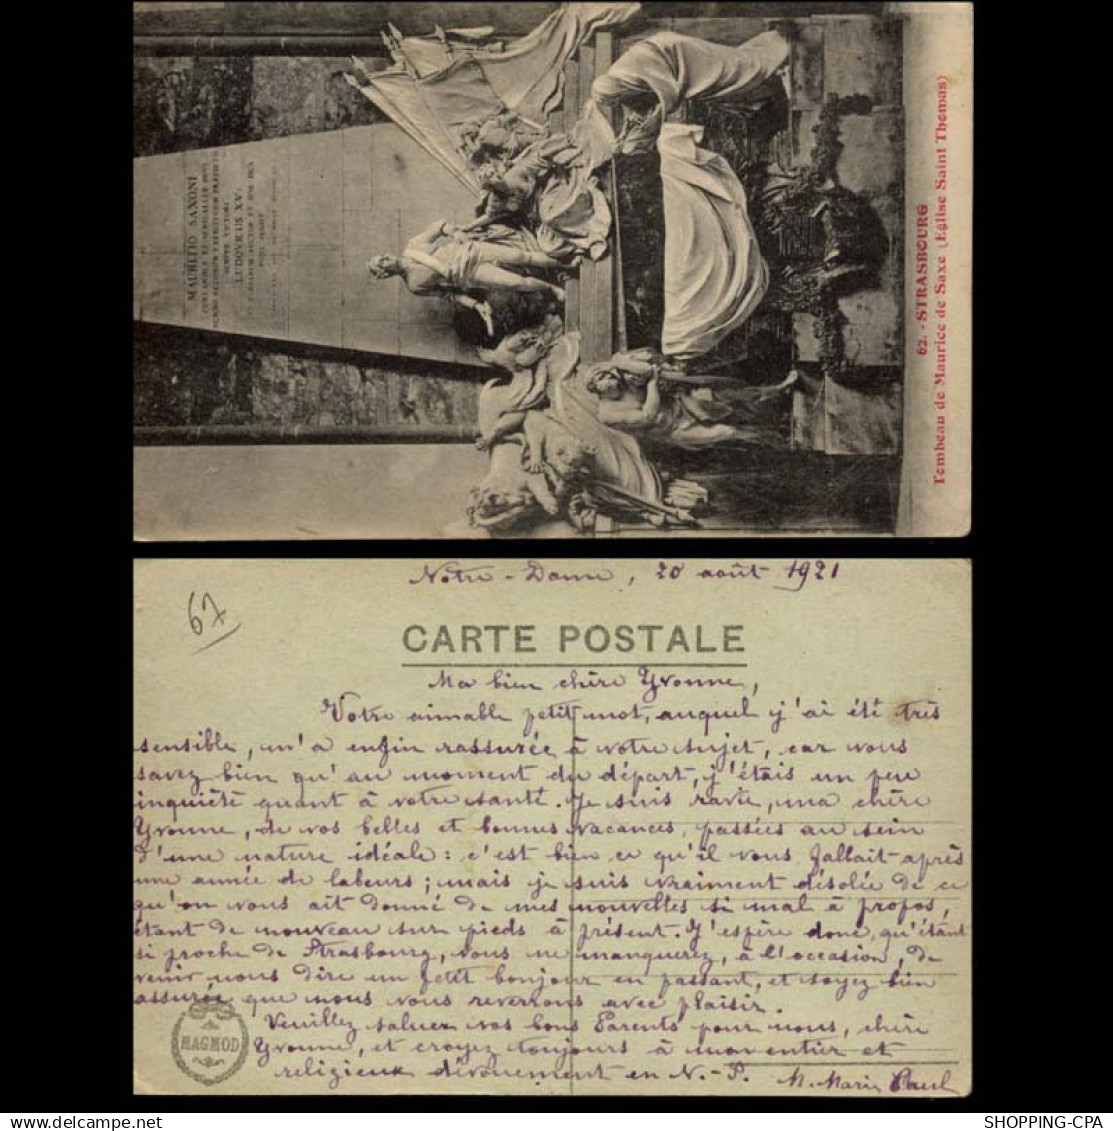 MAURITIO SAXONI
LUDOVICUS XV
62. - STRASBOURG
Tombeau de Maurice de Saxe (Eglise Saint Thomas)
Notre-Dame, 20 août 1921
67
CARTE POSTALE
Ma bien chère Yvonne,
Votre aimable petit mot, auquel j'ai été très
sensible, m'a enfin rassurée à votre sujet, car vous
savez bien qu'au moment du départ, j'étais un peu
inquiète quant à votre santé. Je suis ravie, ma chère
Yvonne, de vos belles et bonnes vacances, passées au sein
d'une nature idéale : c'est bien ce qu'il vous fallait après
une année de labeurs ; mais je suis vraiment désolée de ce
qu'on vous ait donné de mes nouvelles si mal à propos,
étant de nouveau sur pieds à présent. J'espère donc, qu'étant
si proche de Strasbourg, vous ne manquerez, à l'occasion, de
venir nous dire un petit bonjour en passant, et soyez bien
assurée que nous vous reverrons avec plaisir.
Veuillez saluer vos bons Parents pour nous, chère
Yvonne, et croyez toujours à mon entier et
religieux dévouement en N.-S. M. Marie Paul
MAGMOD
SHOPPING-CPA